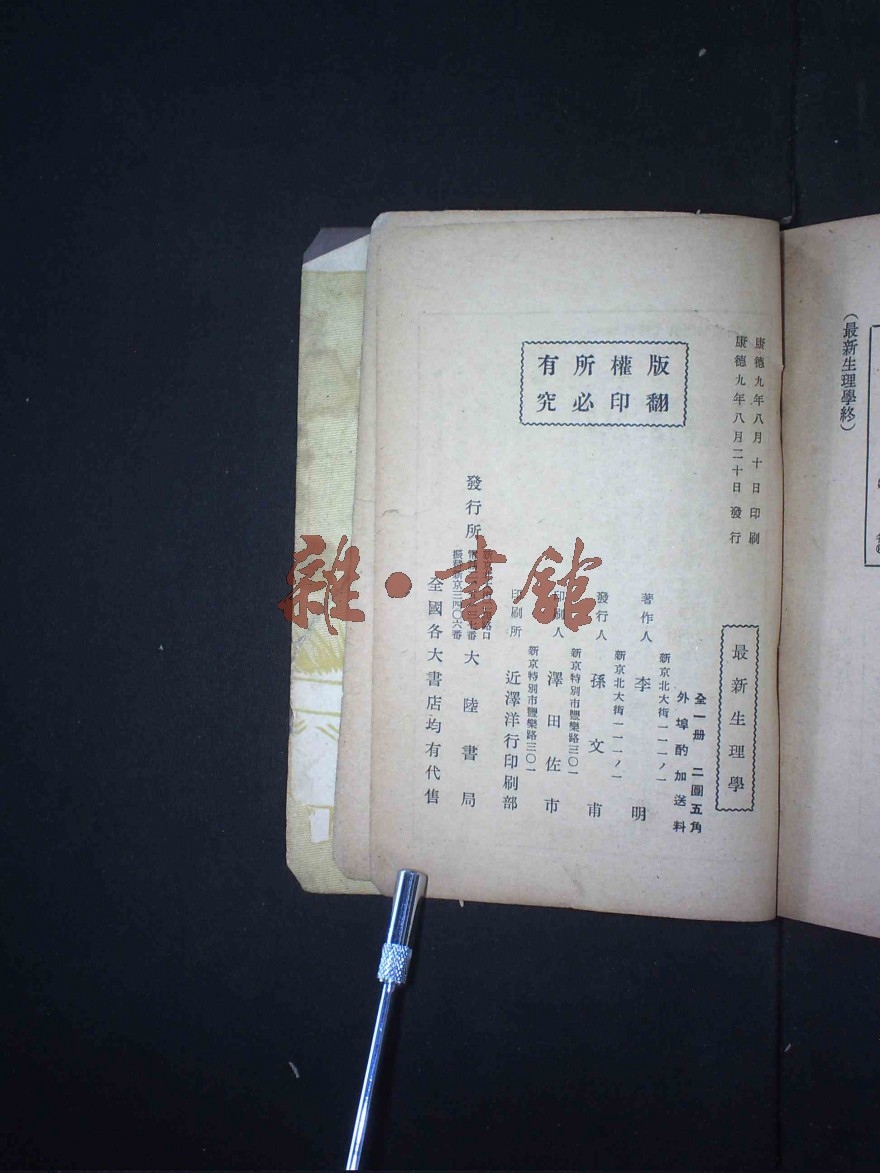 (最新生理學終)
康德九年八月十日印刷
康德九年八月二十日發行
版權所有
翻印必究
最新生理學
全一册 二圓五角
外埠酌加送料
新京北大街一一一ノ一
著作人 李明
新京北大街一一一ノ一
發行人 孫文甫
新京特別市豐樂路三〇一
印刷人 澤田佐市
新京特別市豐樂路三〇一
印刷所 近澤洋行印刷部
發行所 大陸書局
振替新京三四〇六番
全國各大書店均有代售
雜·書館